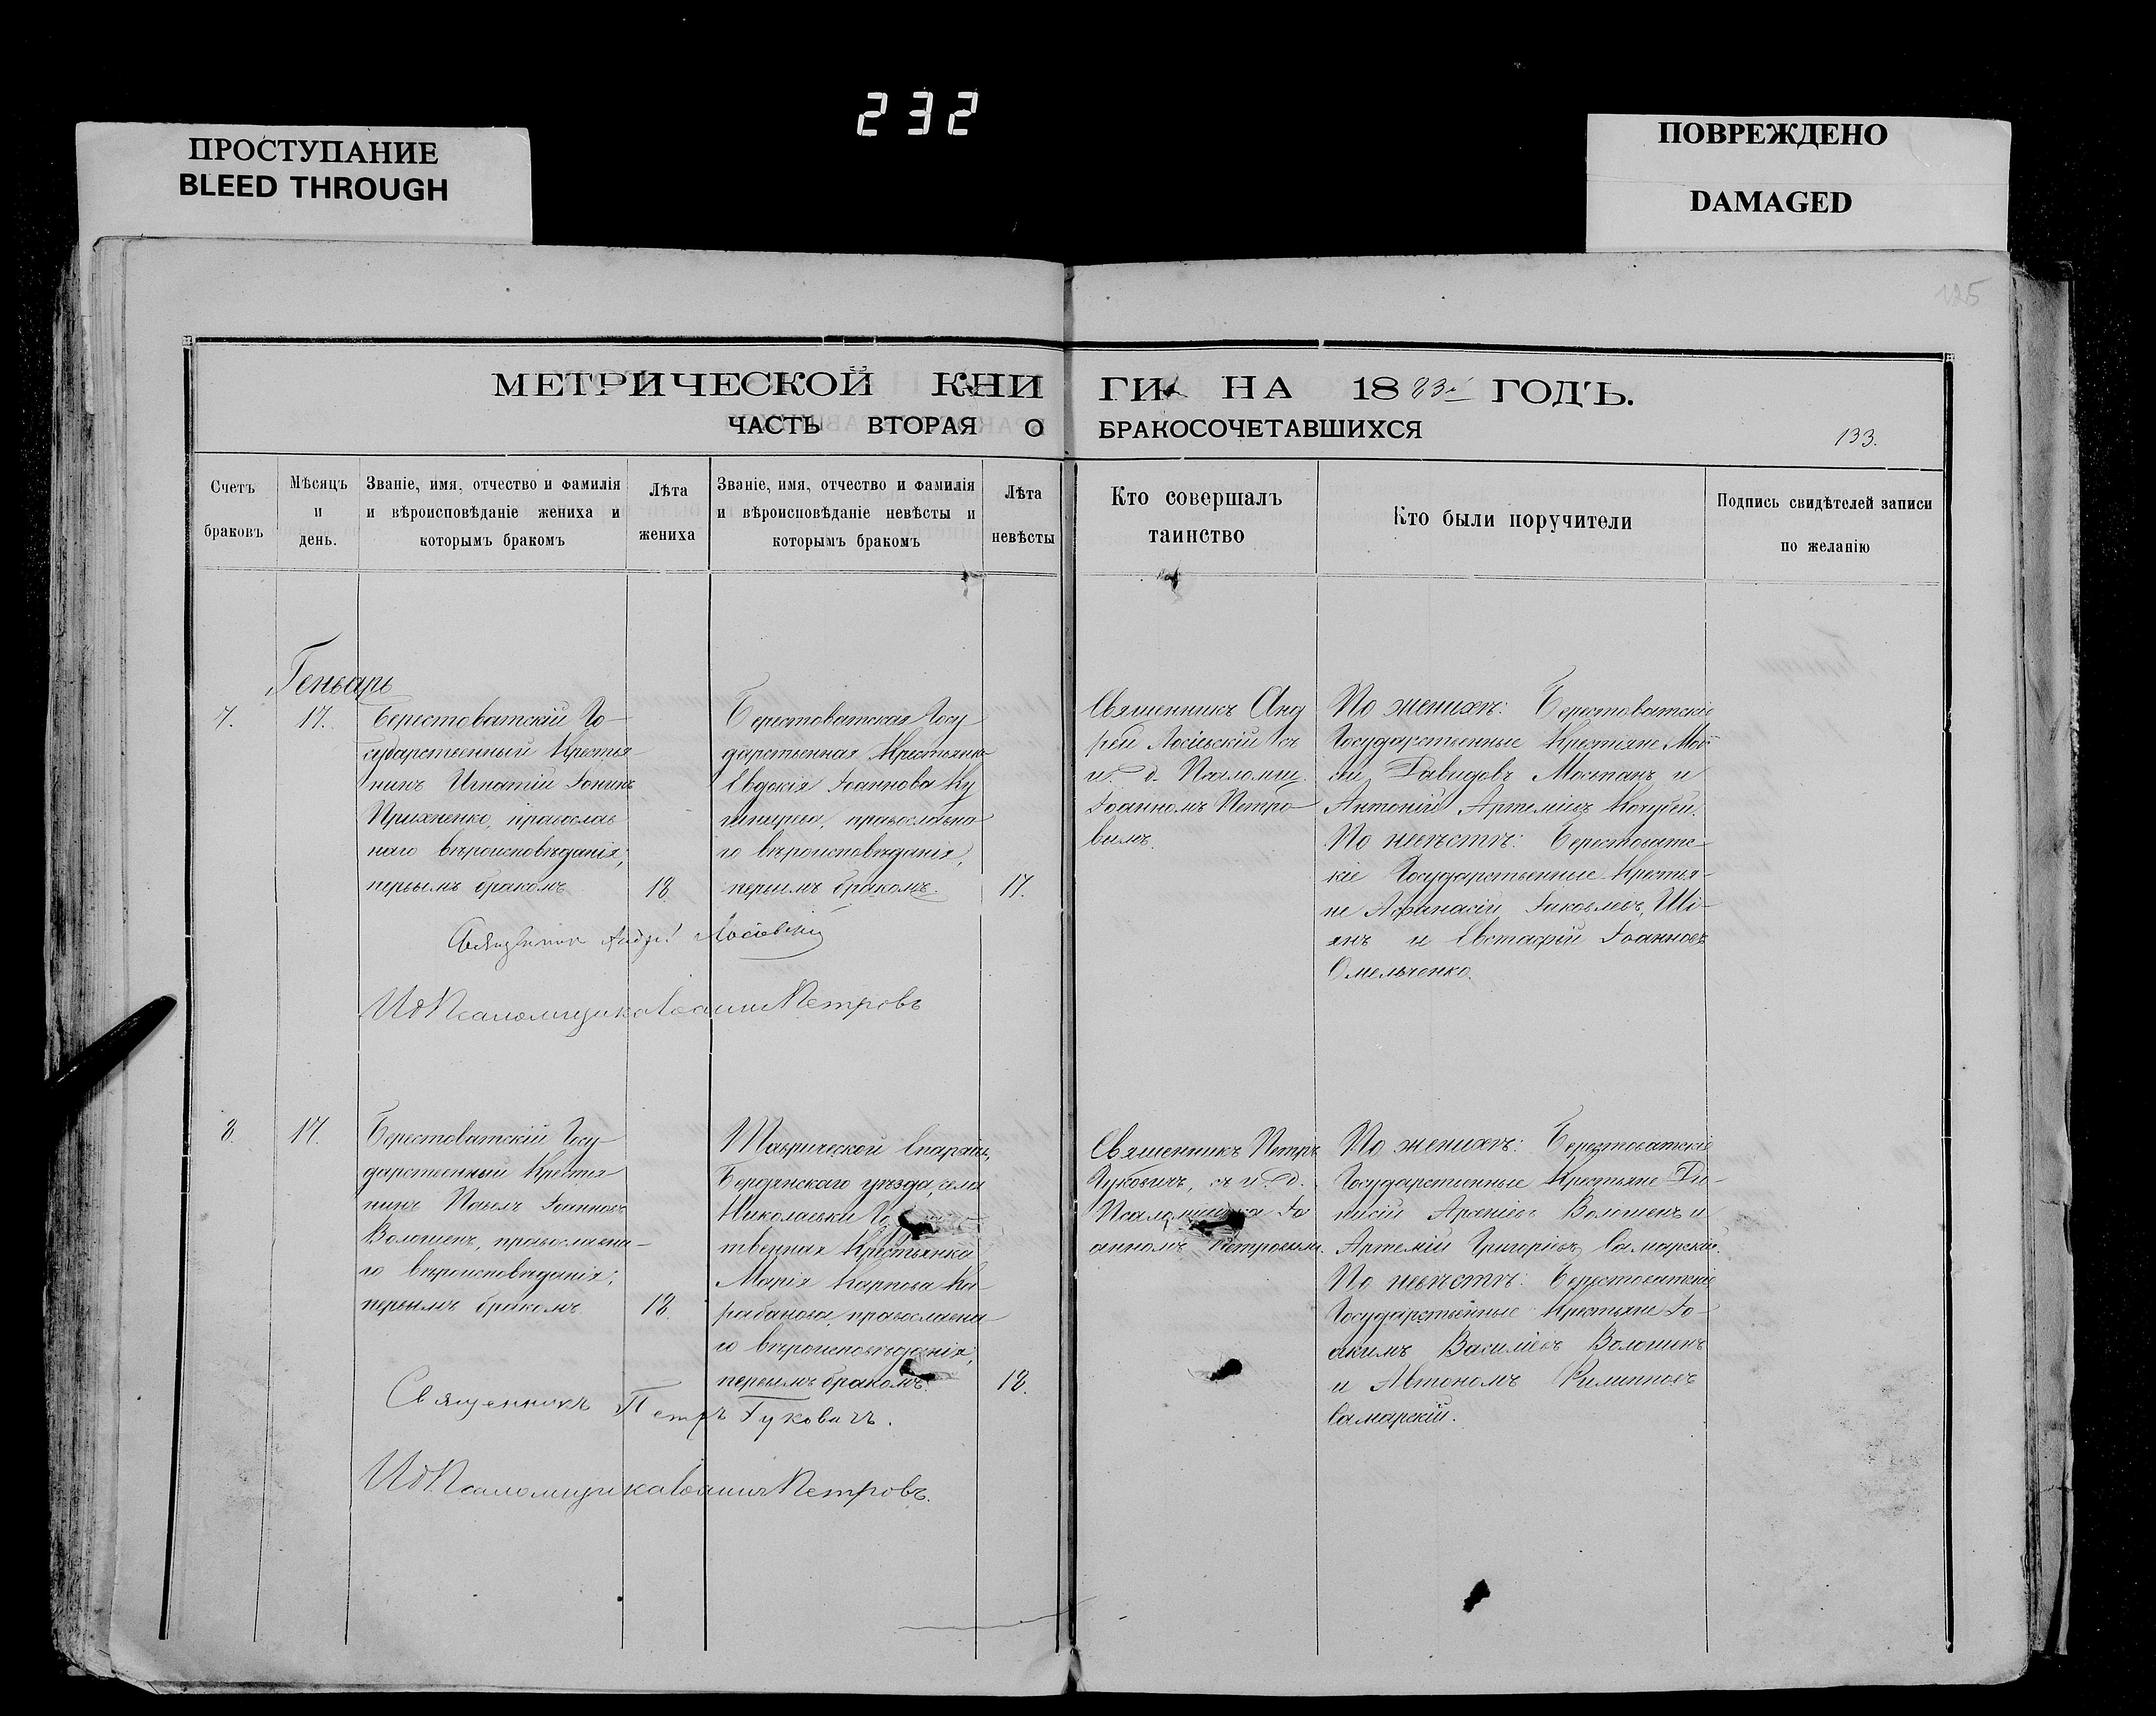 232
ПРОСТУПАНИЕ
BLEED THROUGH
ПОВРЕЖДЕНО
DAMAGED
125
МЕТРИЧЕСКОЙ КНИГИ НА 1883й ГОДЪ.
ЧАСТЬ ВТОРАЯ О БРАКОСОЧЕТАВШИХСЯ
133.
Счетъ браковъ
Мѣсяцъ и день.
Званіе, имя, отчество и фамилія
и вѣроисповѣданіе жениха и
которымъ бракомъ
Лѣта жениха
Званіе, имя, отчество и фамилія
и вѣроисповѣданіе невѣсты и
которымъ бракомъ
Лѣта невѣсты
Кто совершалъ
таинство
Кто были поручители
Подпись свидѣтелей записи
по желанію
Геньварь
7.
17.
Берестоватскій Го-
сударственный Крестья
нинъ Игнатій Іонинъ
Прихненко, православ
наго вѣроисповѣданія,
первымъ бракомъ
18.
Берестоватская Госу
дарственная Крестьянка
Евдокія Іоаннова
православна
го вѣроисповѣданія,
первымъ бракомъ.
17.
Священникъ Анд
рей Лосіевскій съ
и. д. Псаломщ.
Іоанномъ Петро
вымъ.
По женихѣ: Берестоватскіе
Государственные Крестьяне Мои
сей Давидовъ Мостанъ и
Антоній Артеміевъ Кочубей.
По невѣстѣ: Берестоватс-
кіе Государственные Крестья-
не Афанасій Іаковлевъ Ші-
янъ и Евстафій Іоанновъ
Омельченко.
Священникъ Андрей Лосіевскій
ИдПсаломщика Іоаннъ Петровъ
8.
17.
Берестоватскій Госу
дарственный Крестья
нинъ Павелъ Іоанновъ
Волошенъ, православна-
го вѣроисповѣданія;
первымъ бракомъ
18.
Таврической Епархіи,
Бердянскаго уѣзда, села
Николаевки Го
твенная Крестьянка
Марія Карпова Ка-
рабанова, православна
го вѣроисповѣданія,
первымъ бракомъ.
18.
Священникъ Петръ
Гуковичъ, съ и. д.
Псаломщика Іо
анномъ Петровымъ.
По женихѣ: Берестоватскіе
Государственные Крестьяне Ди-
нисій Арсеніевъ Волошенъ и
Артемій Григоріевъ Самарскій.
По невѣстѣ: Берестоватскіе
Государственные Крестьяне Іо-
акимъ Василіевъ Волошенъ
и Автономъ Филипповъ
Самарскій.
Священникъ Петръ Гуковичъ.
ИдПсаломщика Іоаннъ Петровъ.